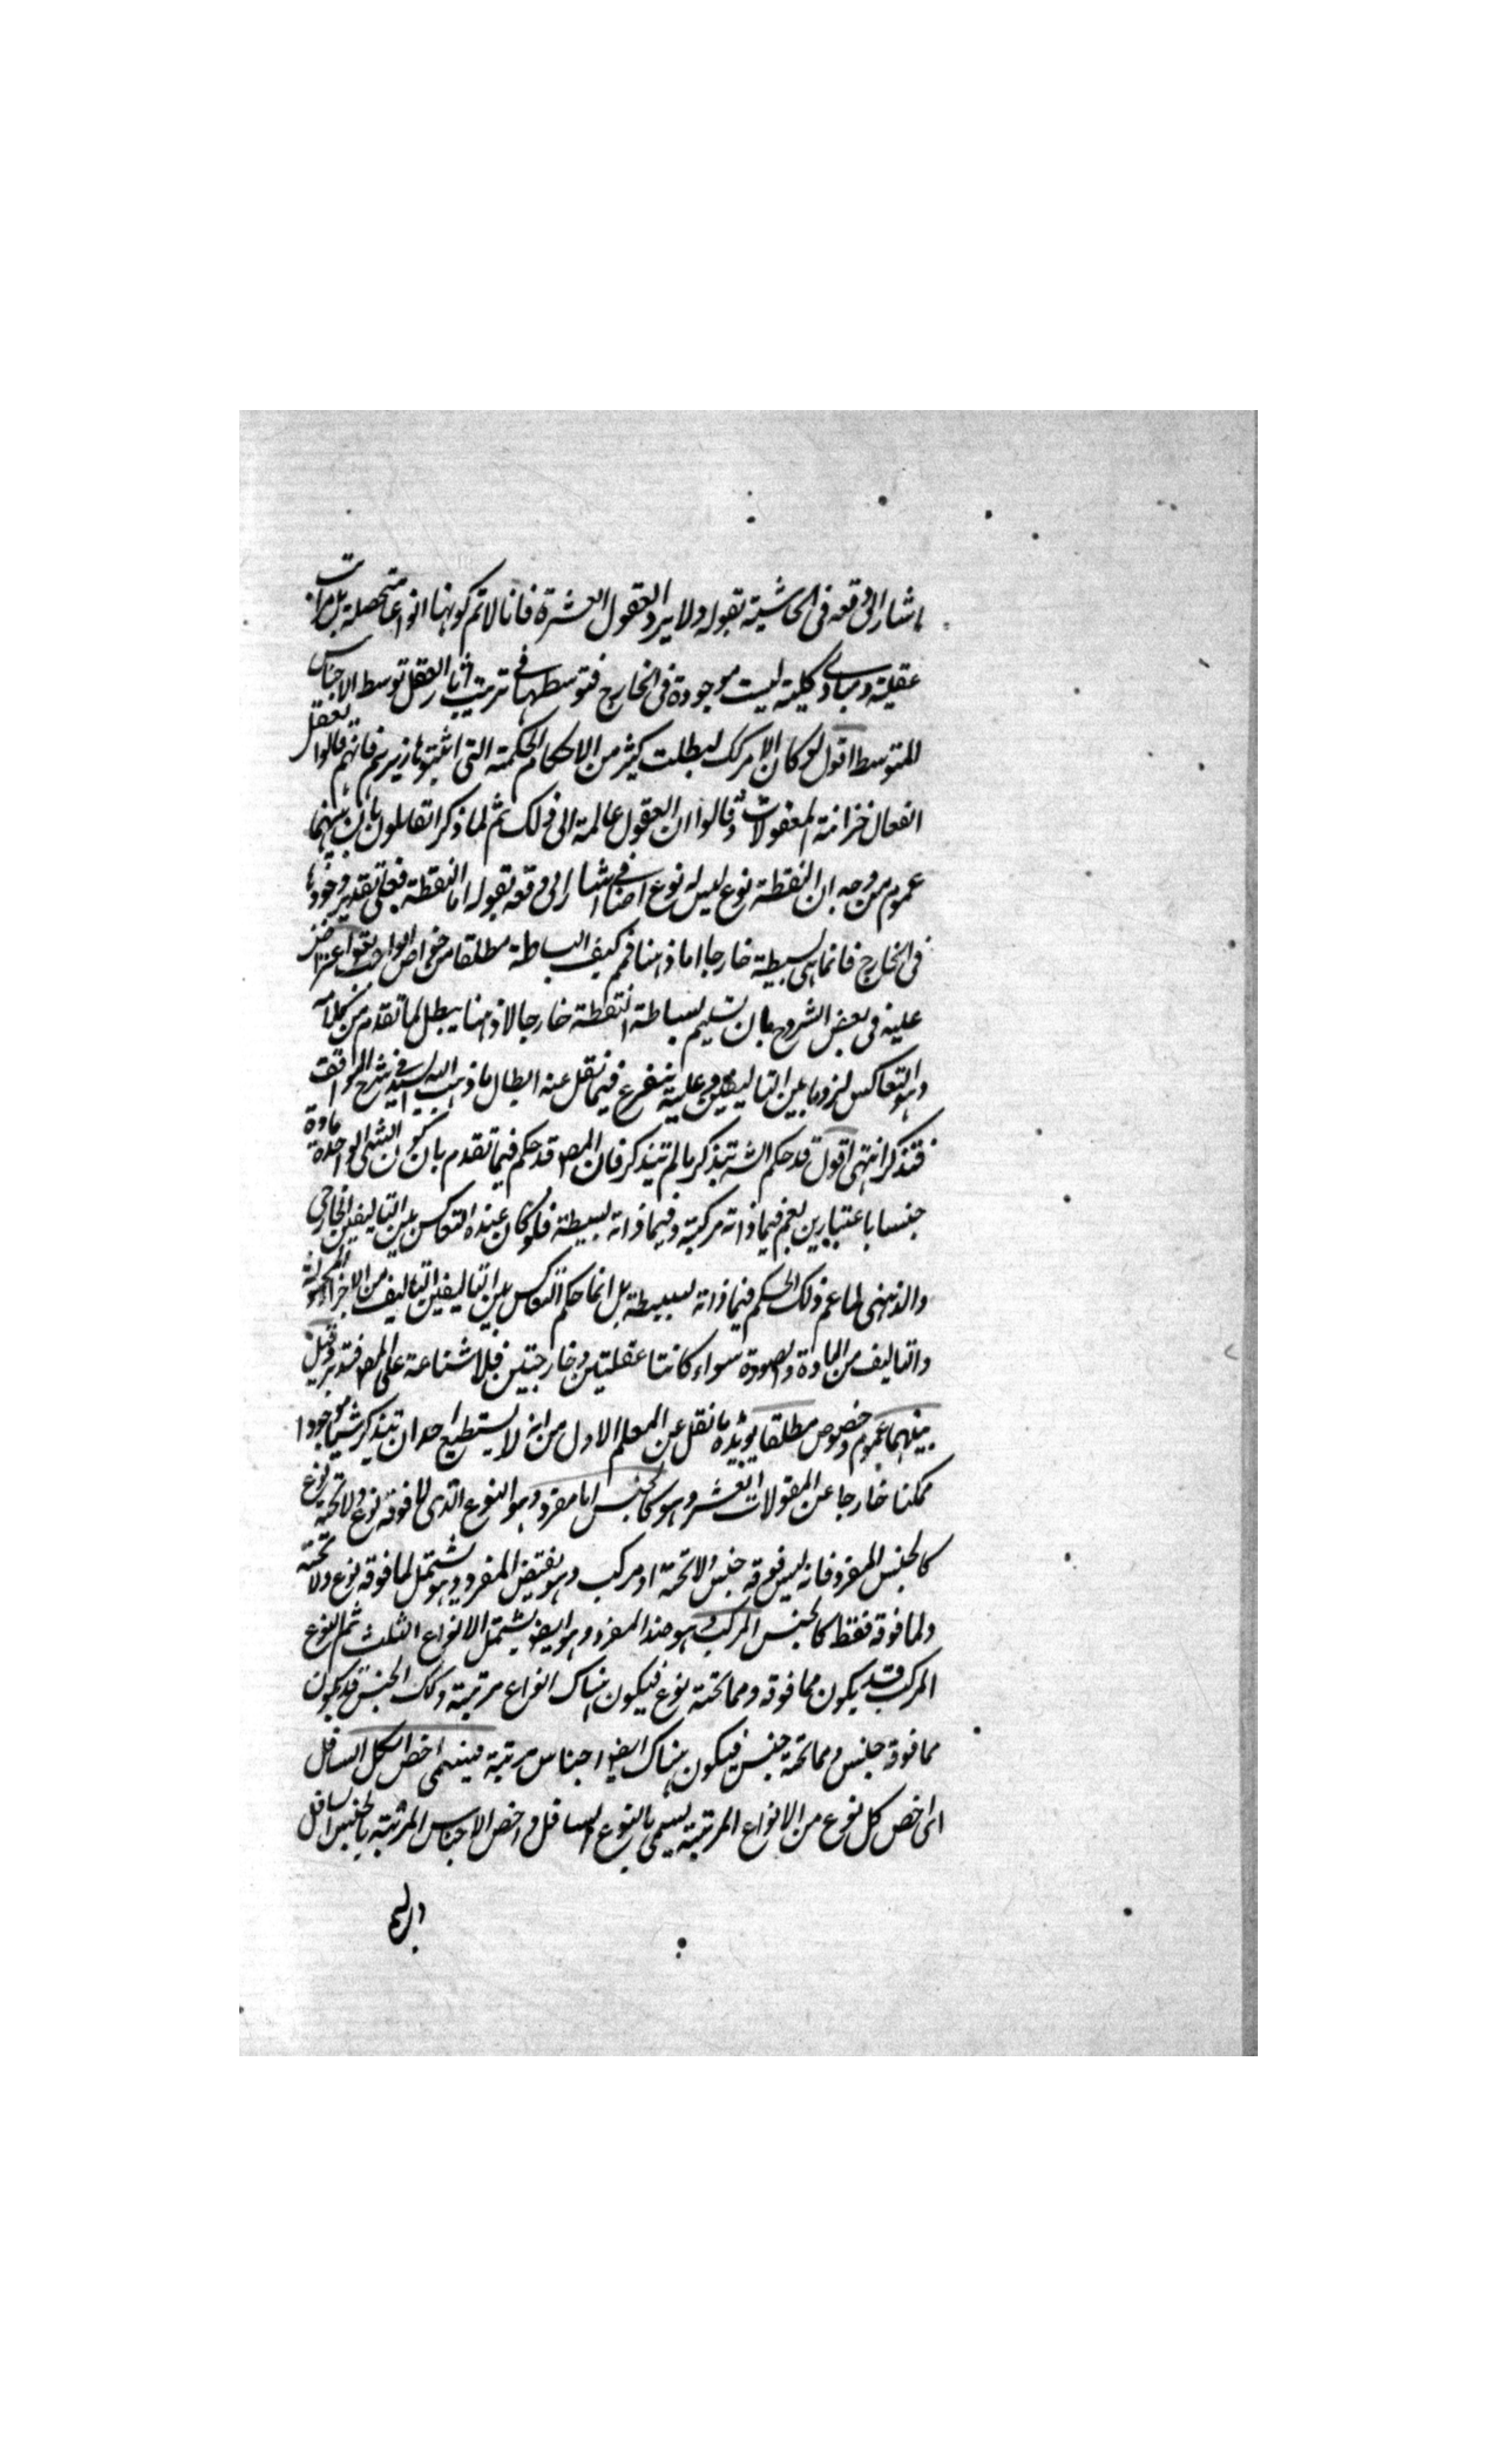 اشار الى دفعه فى الحاشية بقوله ولا يرد العقول العشرة فانا لا نم كونها انواعا متحصلة بل مراتب
عقلية ومبادى كلية ليست موجودة فى الخارج فتوسطها فى ترتيب آثار العقل توسط الاجناس
للمتوسط اقول لو كان الامر كك لبطلت كثير من الاحكام الحكمية التى اثبتوها فانهم قالوا العقل
الفعال خزانة المعقولات وقالوا ان العقول عالمة الى ذلك ثم لما ذكر القائلون بان بينهما
عموم من وجه ان النقطة نوع ليس له نوع اضافى اشار الى دفعه بقوله اما النقطة فعلى تقدير وجودها
فى الخارج فانما هى بسيطة خارجا اما ذهنا فمم كيف البساطة مطلقا من خواص الواجب تعالى اعترض
عليه فى بعض الشروح بان تسليم بساطة النقطة خارجا لا ذهنا يبطل لما تقدم من كلامه
وهو التعاكس لزوما بين التاليفين وعليه يتفرع فيما نقل عنه ابطال ما ذهب اليه السيد فى شرح المواقف
فتذكر انتهى اقول قد حكم الشه بتذكر ما لم يتذكر فان المص قد حكم فيما تقدم بان كون الشى الواحد مادة
جنسا باعتبارين يعم فيما ذاته مركبة وفيما ذاته بسيطة فلو كان عنده التعاكس بين التاليفين الخارجى
والذهنى لما عم ذلك الحكم فيما ذاته بسيطة بل انما حكم التعاكس بين التاليفين التاليف من الاجزاء المحمولة
والتاليف من المادة والصورة سواء كانتا عقليتين وخارجيتين فلا شناعة على المص فتدبر وقيل
بينهما عموم وخصوص مطلقا يؤيده ما نقل عن المعلم الاول من انه لا يستطيع احد ان يتذكر شيئا موجودا
ممكنا خارجا عن المقولات العشر وهو كالجنس اما مفرد وهو النوع الذى لا فوقه نوع ولا تحته نوع
كالجنس المفرد فانه ليس فوقه جنس ولا تحته او مركب وهو نقيض المفرد وهو يشتمل لما فوقه نوع ولا تحته
ولما فوقه فقط كالجنس المركب وهو ضد المفرد وهو ايضا يشتمل الانواع الثلث ثم النوع
المركب قد يكون مما فوقه ومما تحته نوع فيكون هناك انواع مرتبة وكك الجنس قد يكون
مما فوقه جنس ومما تحته جنس فيكون هناك ايضا اجناس مرتبة فيسمى اخص الكل السافل
اى اخص كل نوع من الانواع المرتبة يسمى بالنوع السافل واخص الاجناس المرتبة بالجنس السافل